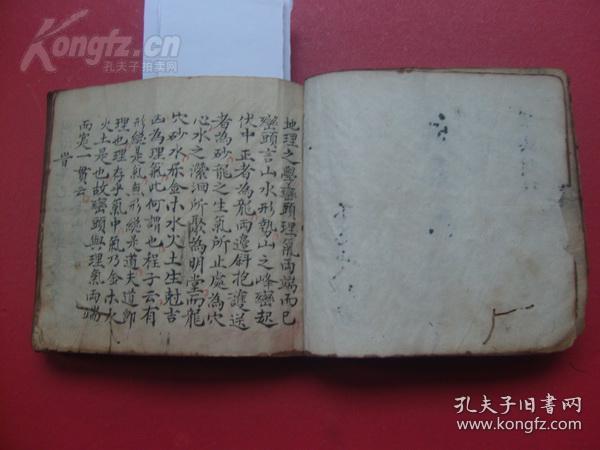 地理之學巒頭理氣兩端而已
巒頭言山水形勢山之峰巒起
伏中正者為龍兩邊斜抱護送
者為砂龍之生氣所止處為穴
心水之瀠洄所聚為明堂而龍
穴砂水屬金木水火土生尅吉
凶為理氣此何謂也程子云有
形總是氣無形總是道夫道即
理也理存乎氣中氣乃金木水
火土是也故巒頭與理氣兩端
而実一貫云
Kongfz.cn
孔夫子拍卖网
孔夫子旧书网
www.kongfz.com